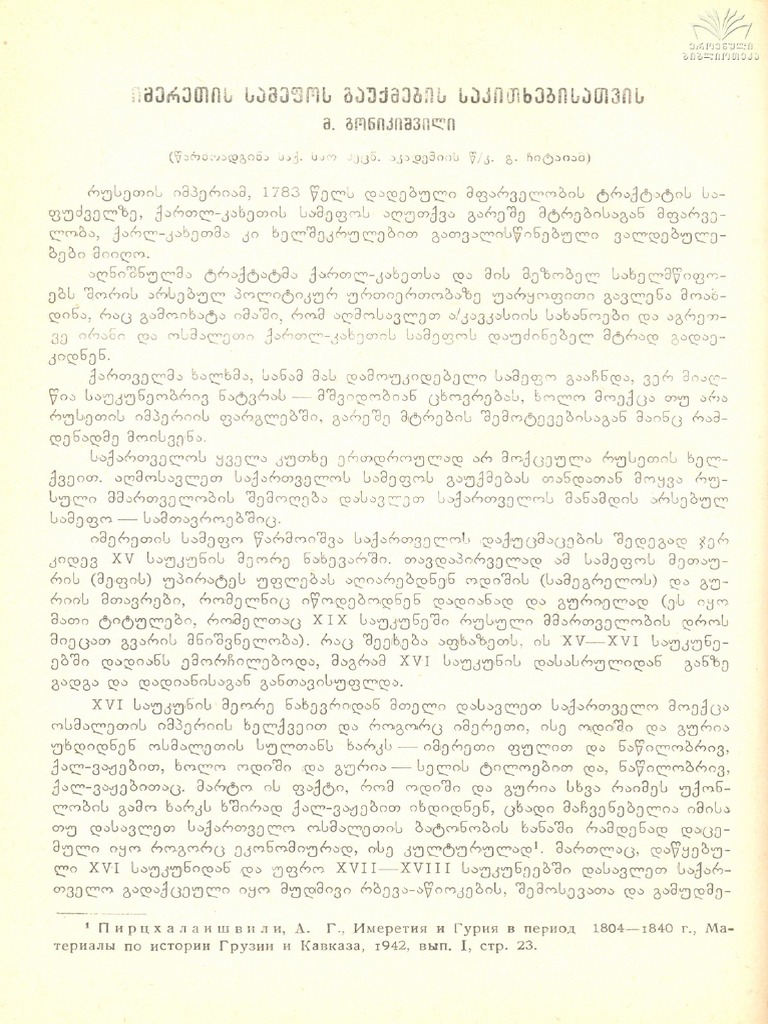 ეროვნული
ბიბლიოთეკა
იმერეთის სამეფოს გაუქმების საკითხებისათვის
მ. გონიკიშვილი
(წარმოადგინა საქ. სსრ მეცნ. აკადემიის წ/კ. გ. ჩიტაიამ)
რუსეთის იმპერიამ, 1783 წელს დადებული მფარველობის ტრაქტატის სა-
ფუძველზე, ქართლ-კახეთის სამეფოს აღუთქვა გარეშე მტრებისაგან მფარვე-
ლობა, ქარლ-კახეთმა კი ხელშეკრულებით გათვალისწინებული ვალდებულე-
ბები მიიღო.
აღნიშნულმა ტრაქტატმა ქართლ-კახეთსა და მის მეზობელ სახელმწიფო-
ებს შორის არსებულ პოლიტიკურ ურთიერთობაზე უარყოფითი გავლენა მოახ-
დინა, რაც გამოიხატა იმაში, რომ აღმოსავლეთ ა/კავკასიის სახანოები და აგრეთ-
ვე ირანი და ოსმალეთი ქართლ-კახეთის სამეფოს დაუძინებელ მტრად გადაე-
კიდნენ.
ქართველმა ხალხმა, სანამ მას დამოუკიდებელი სამეფო გააჩნდა, ვერ მიაღ-
წია საუკუნეობრივ ნატვრას — მშვიდობიან ცხოვრებას, ხოლო მოექცა თუ არა
რუსეთის იმპერიის ფარგლებში, გარეშე მტრების შემოტევებისაგან მაინც რამ-
დენადმე მოისვენა.
საქართველოს ყველა კუთხე ერთდროულად არ მოქცეულა რუსეთის ხელ-
ქვეით. აღმოსავლეთ საქართველოს სამეფოს გაუქმებას თანდათან მოყვა რუ-
სული მმართველობის შემოღება დასავლეთ საქართველოს მანამდის არსებულ
სამეფო — სამთავროებშიც.
იმერეთის სამეფო წარმოიშვა საქართველოს დაქუცმაცების შედეგად ჯერ
კიდევ XV საუკუნის მეორე ნახევარში. თავდაპირველად ამ სამეფოს მეთაუ-
რის (მეფის) უპირატეს უფლებას აღიარებდნენ ოდიშის (სამეგრელოს) და გუ-
რიის მთავრები, რომელნიც იწოდებოდნენ დადიანად და გურიელად (ეს იყო
მათი ტიტულები, რომელთაც XIX საუკუნეში რუსული მმართველობის დროს
მიეცათ გვარის მნიშვნელობა). რაც შეეხება აფხაზეთს, ის XV—XVI საუკუნე-
ებში დადიანს ემორჩილებოდა, მაგრამ XVI საუკუნის დასასრულიდან განზე
გადგა და დადიანისაგან განთავისუფლდა.
XVI საუკუნის მეორე ნახევრიდან მთელი დასავლეთ საქართველო მოექცა
ოსმალეთის იმპერიის ხელქვეით და როგორც იმერეთი, ისე ოდიში და გურია
უხდიდნენ ოსმალეთის სულთანს ხარკს — იმერეთი ფულით და ნაწილობრივ,
ქალ-ვაჟებით, ხოლო ოდიში და გურია — სელის ტილოებით და, ნაწილობრივ,
ქალ-ვაჟებითაც. მარტო ის ფაქტი, რომ ოდიში და გურია სხვა რაიმეს უქონ-
ლობის გამო ხარკს ხშირად ქალ-ვაჟებით იხდიდნენ, ცხადი მაჩვენებელია იმისა
თუ დასავლეთ საქართველო ოსმალეთის ბატონობის ხანაში რამდენად დაცე-
მული იყო როგორც ეკონომიურად, ისე კულტურულად¹. მართლაც, დაწყებუ-
ლი XVI საუკუნიდან და უფრო XVII—XVIII საუკუნეებში დასავლეთ საქარ-
თველო გადაქცეული იყო მუდმივი რბევა-აწიოკების, შემოსევათა და გამუდმე-
¹ Пирцхалаишвили, А. Г., Имеретия и Гурия в период 1804—1840 г., Ма-
териалы по истории Грузии и Кавказа, 1942, вып. I, стр. 23.